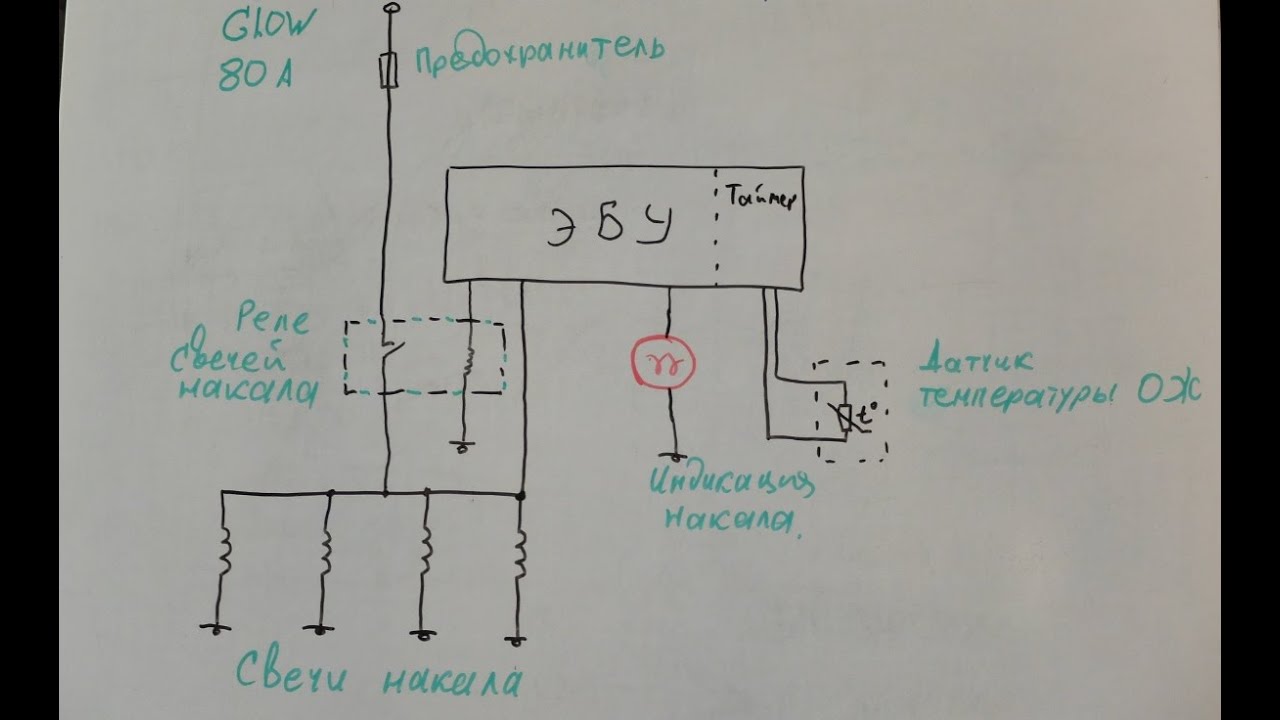 Glow
80А
Предохранитель
ЭБУ
Таймер
Реле
Свечей
накала
Датчик
температуры ОЖ
t°
Индикация
накала.
Свечи накала